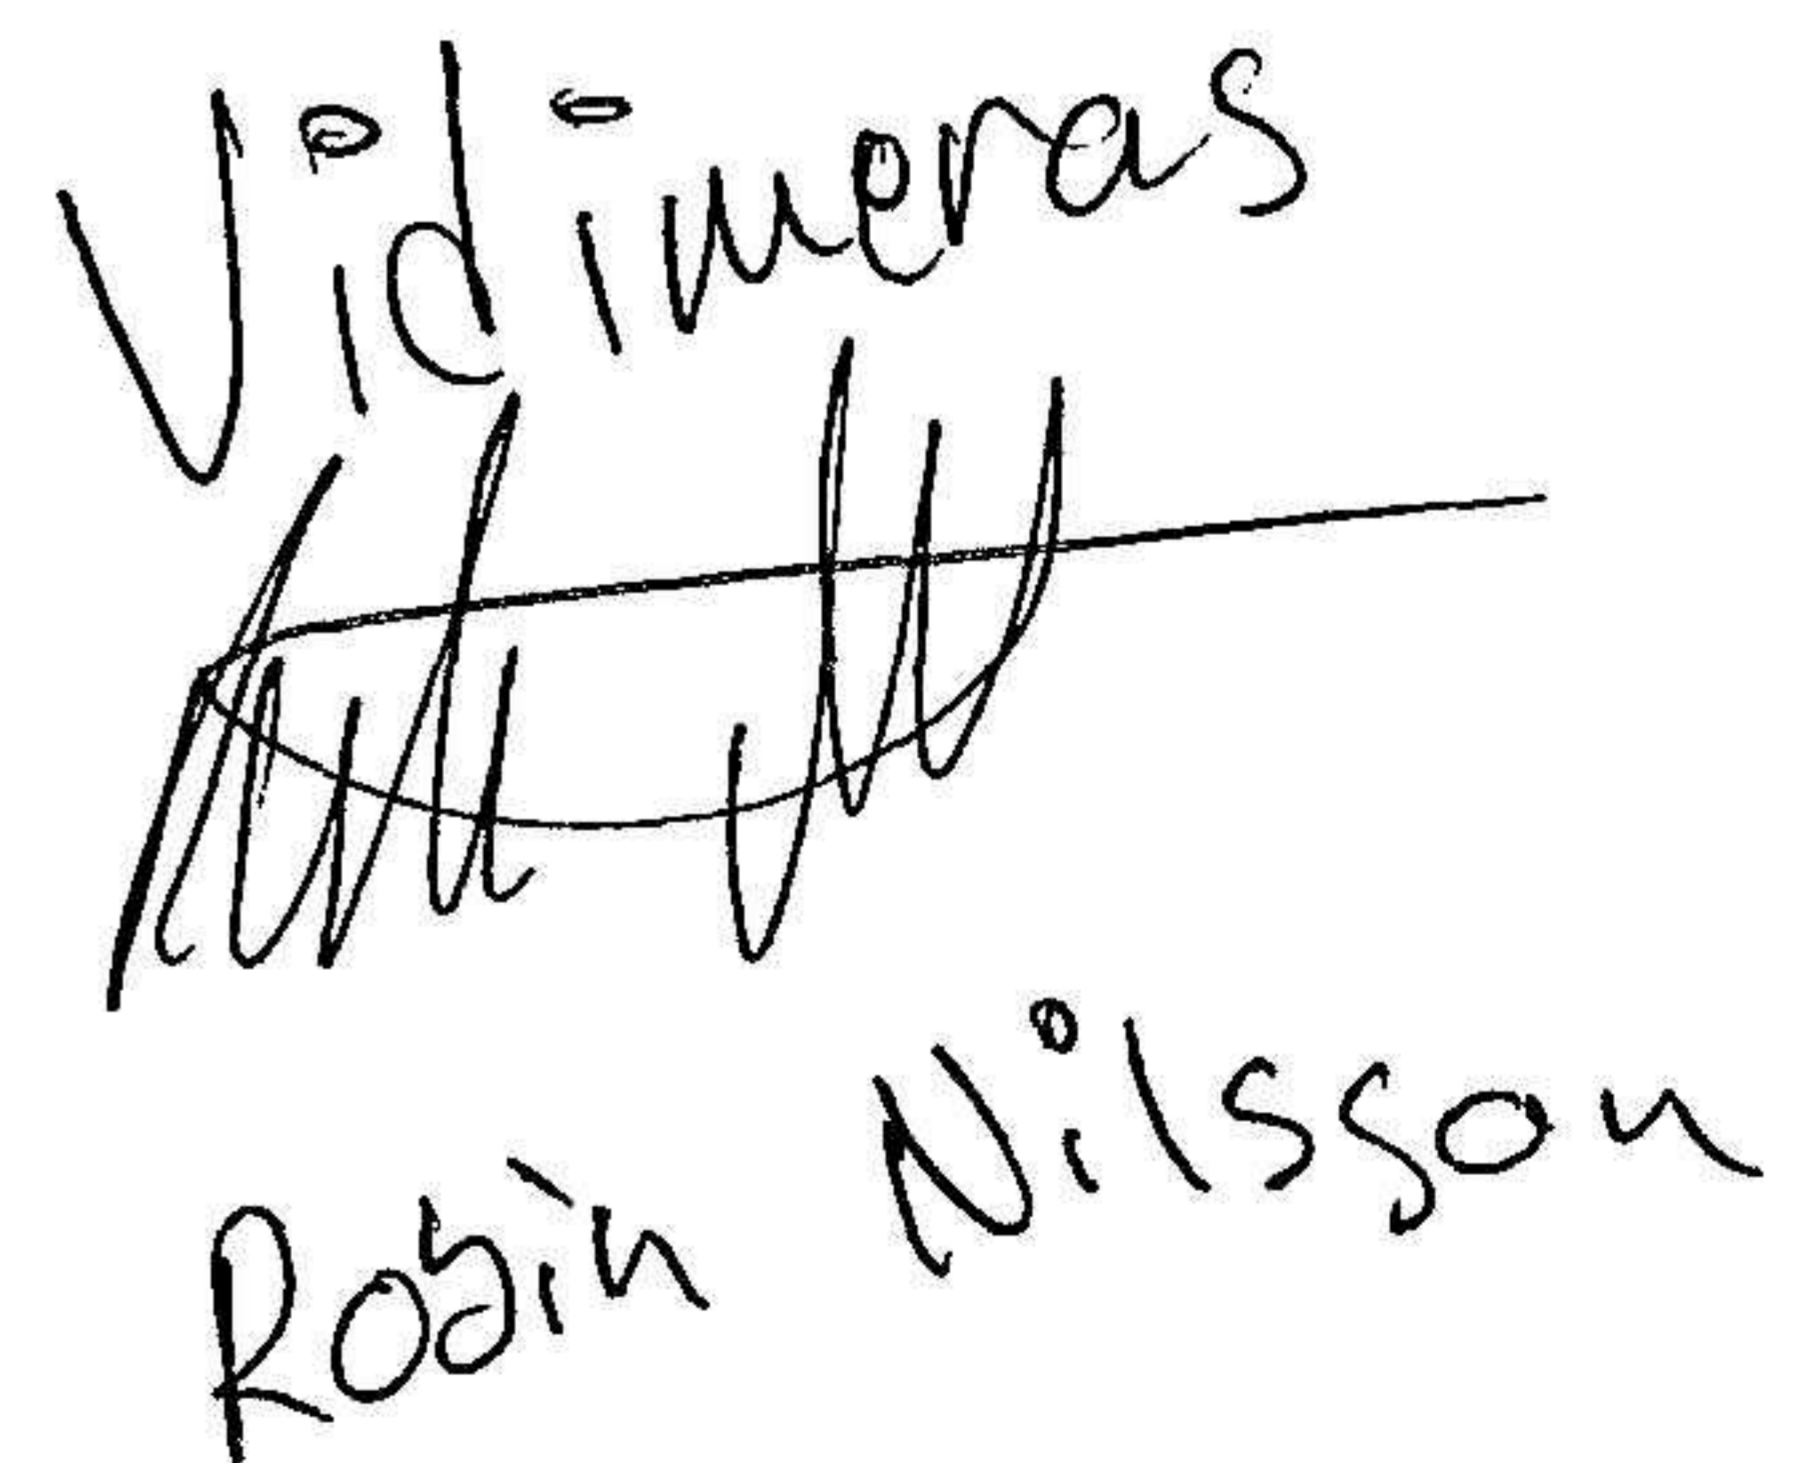 Vidimeras
Robin Nilsson